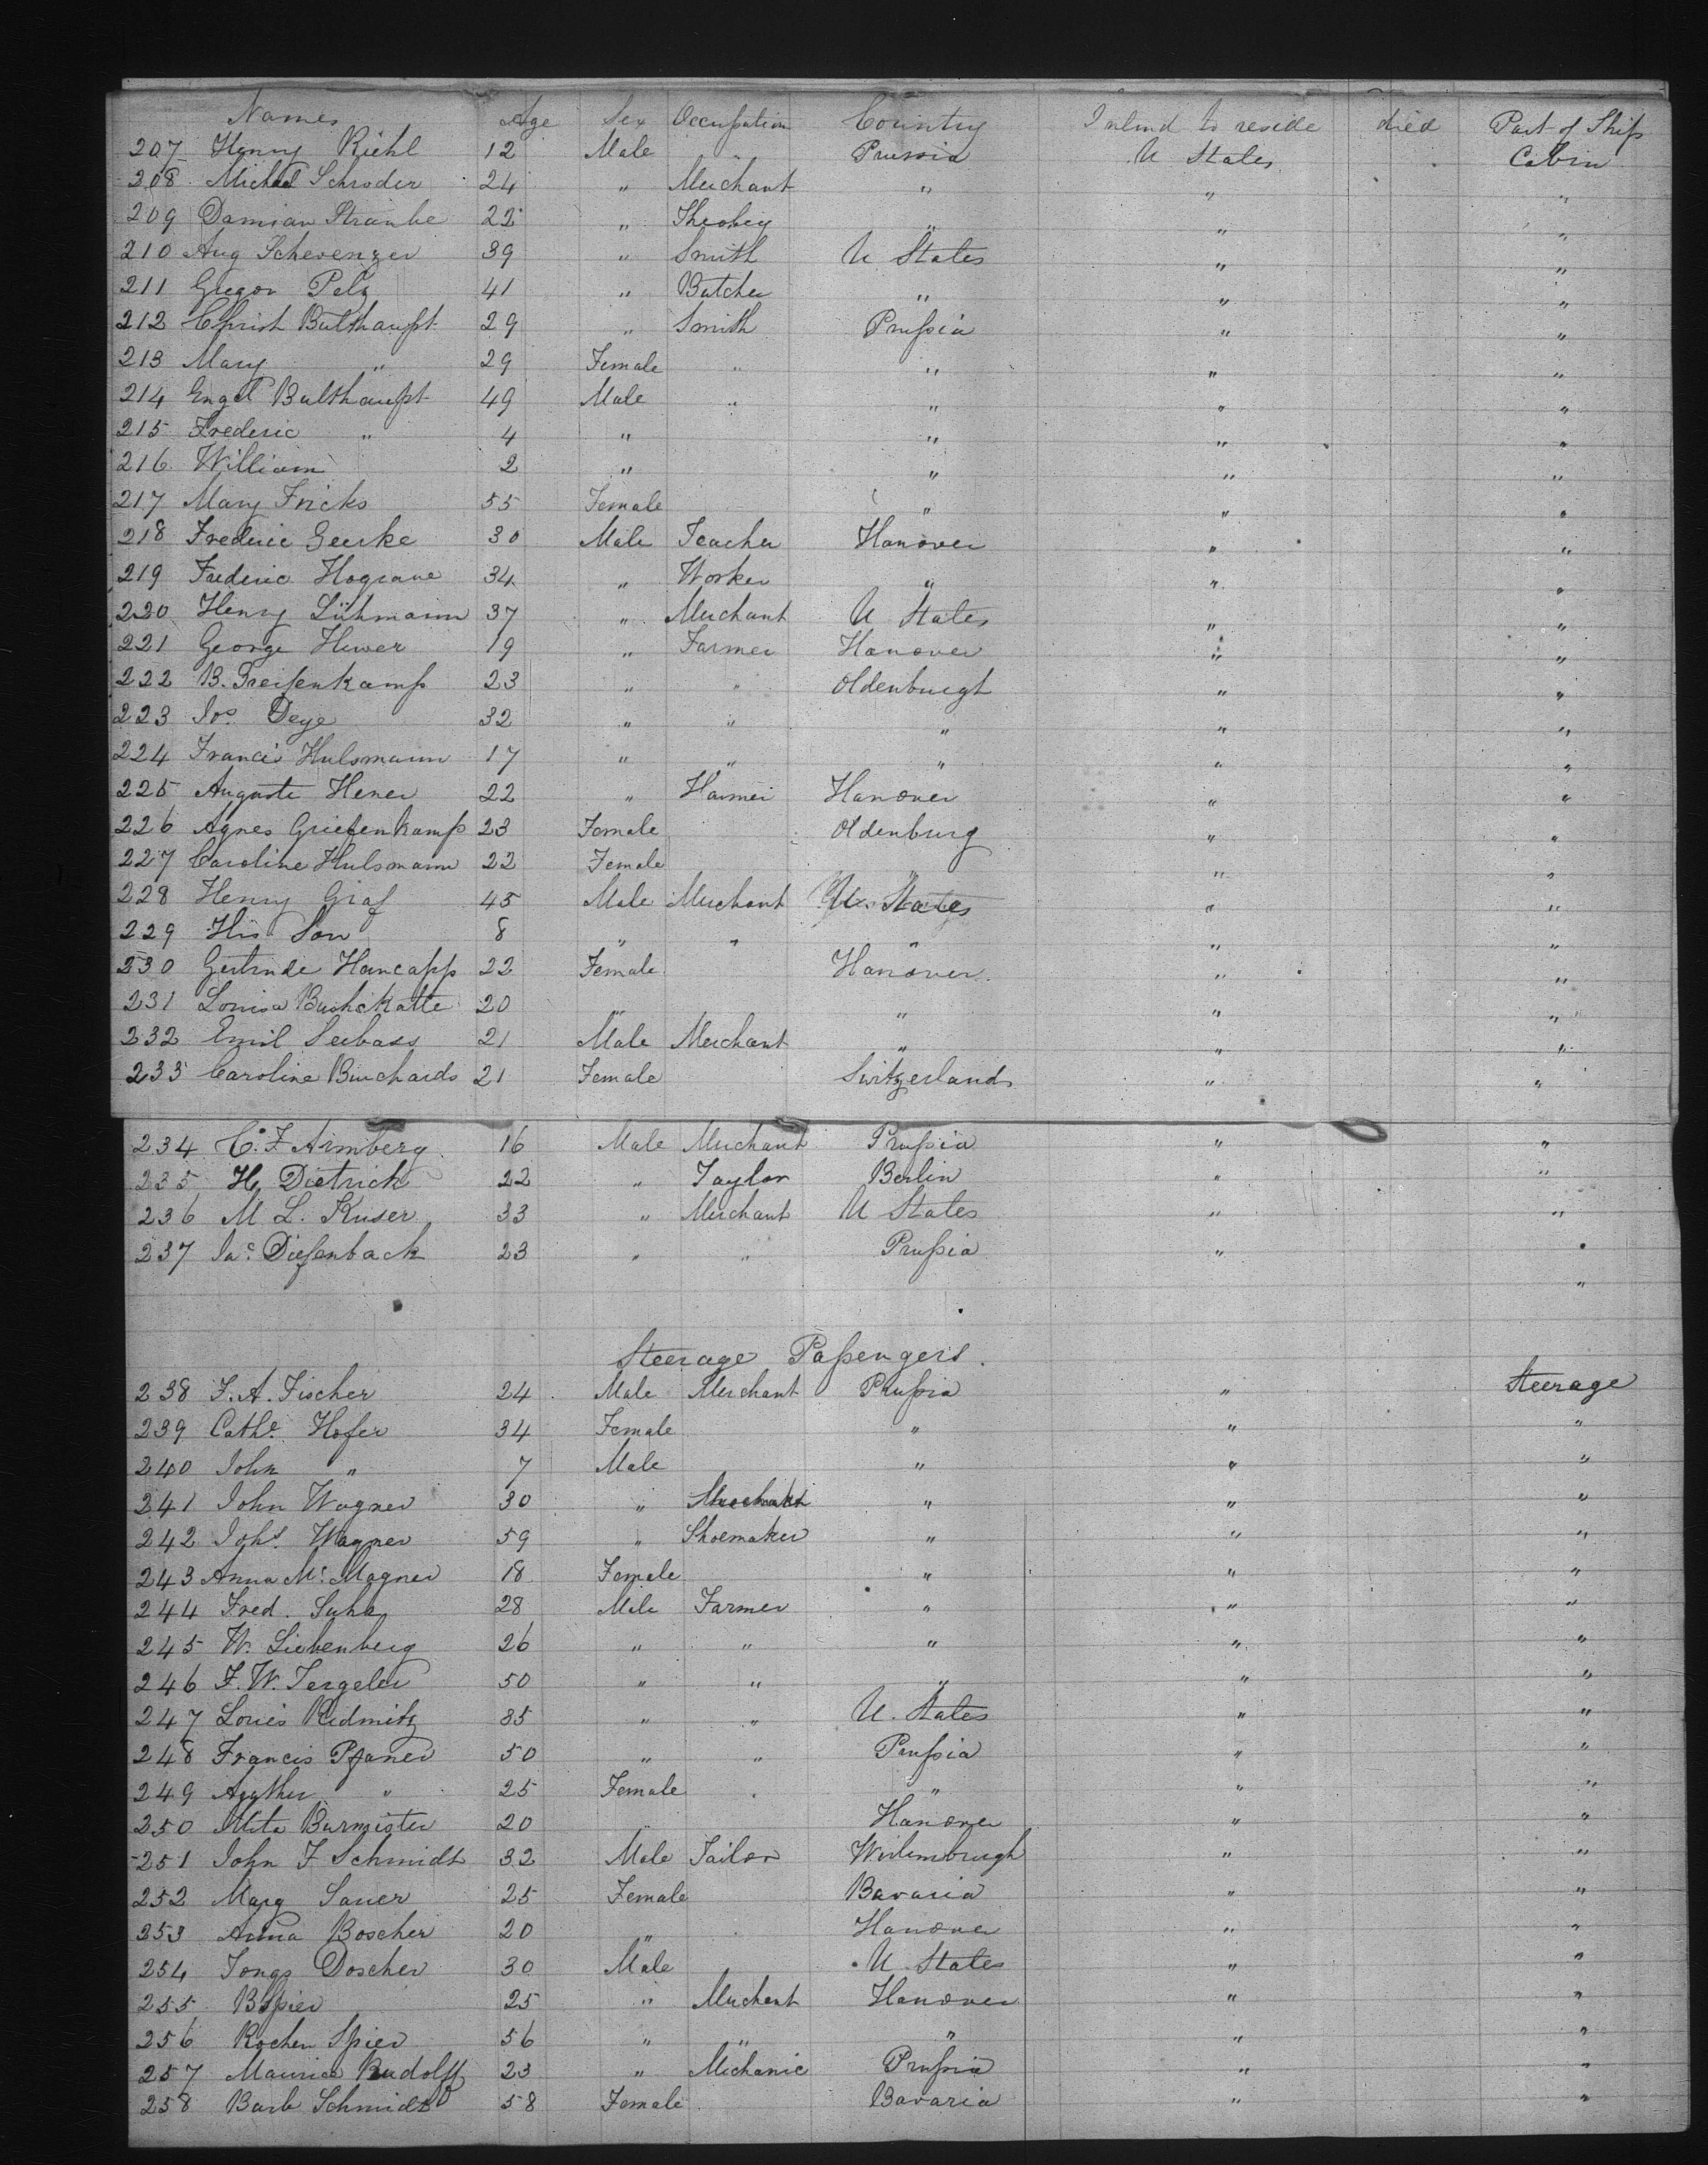 Names Age Sex Occupation Country Intend to reside died Part of Ship
207 Henry Riehl 12 Male " Prussia U States Cabin
208 Michael Schroder 24 " Merchant " " "
209 Damian Straube 22 " " " "
210 Aug Schevenger 39 " Smith U States " "
211 Gregor Pelz 41 " Butcher " " "
212 Christ Bulthaupt 29 " Smith Prußia " "
213 Mary " 29 Female " " " "
214 Engel Bulthaupt 49 Male " " " "
215 Frederic " 4 " " " "
216 William 2 " " " "
217 Mary Fricks 55 Female " " "
218 Frederic Geerke 30 Male Teacher Hanover " "
219 Frederic Hograve 34 " Worker " " "
220 Henry Lühmann 37 " Merchant U States " "
221 George Hewer 19 " Farmer Hanover " "
222 B. Greifenkamp 23 " " Oldenburgh " "
223 Jos. Deye 32 " " " " "
224 Francis Hulsmann 17 " " " " "
225 Auguste Hener 22 " Hanover " "
226 Agnes Griefenkamp 23 Female Oldenburg " "
227 Caroline Hulsmann 22 Female " " "
228 Henry Graf 45 Male Merchant U. States " "
229 His Son 8 " " " " "
230 Gertrude Hancapp 22 Female Hanover " "
231 Louisa Bushckatte 20 " " " "
232 Emil Seebass 21 Male Merchant " " "
233 Caroline Burchards 21 Female Switzerland " "
234 C. F. Armberg 16 Male Merchant Prußia " "
235 H. Dietrick 22 " Taylor Berlin " "
236 M L. Kuser 33 " Merchant U States " "
237 Jac. Diefenback 23 " " Prußia " "
"
Steerage Paßengers.
238 F. A. Fischer 24 Male Merchant Prußia " Steerage
239 Cathe. Hofer 34 Female " " "
240 John " 7 Male " " "
241 John Wagner 30 " " " "
242 Johs. Wagner 59 " Shoemaker " " "
243 Anna M. Magner 18 Female " " "
244 Fred. Suhr 28 Male Farmer " " "
245 W. Liebenberg 26 " " " " "
246 F. W. Tergeler 50 " " " " "
247 Louis Redmitz 35 " " U. States " "
248 Francis Pfaner 50 " " Prußia " "
249 " 25 Female " " "
250 Meta Burmister 20 " Hanover " "
251 John F Schmidt 32 Male Tailor Wirtemburgh " "
252 Marg Sauer 25 Female Bavaria " "
253 Anna Boscher 20 " Hanover " "
254 Doscher 30 Male U. States " "
255 B Spier 25 " Merchant Hanover " "
256 Rochen Spier 56 " " " " "
257 Maurice Rudolff 23 " Mechanic Prußia " "
258 Barb Schmidt 58 Female Bavaria " "